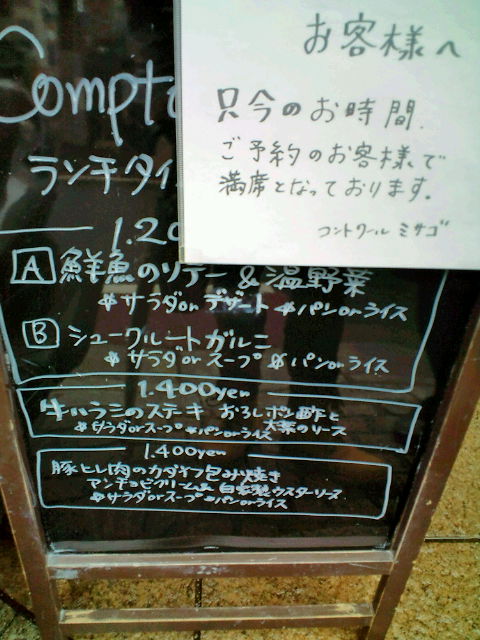 お客様へ
只今のお時間、
ご予約のお客様で
満席となっております。
コントワール ミサゴ
Compto
ランチタイ
1.20
A 鮮魚のソテー & 温野菜
サラダorデザート パンorライス
B シュークルートガルニ
サラダorスープ パンorライス
1.400yen
牛ハラミのステキ おろしポン酢と
大葉のソース
サラダorスープ パンorライス
1.400yen
豚ヒレ肉のカダイフ包み焼き
アンチョビクリーム& 自家製ウスターソース
サラダorスープ パンorライス